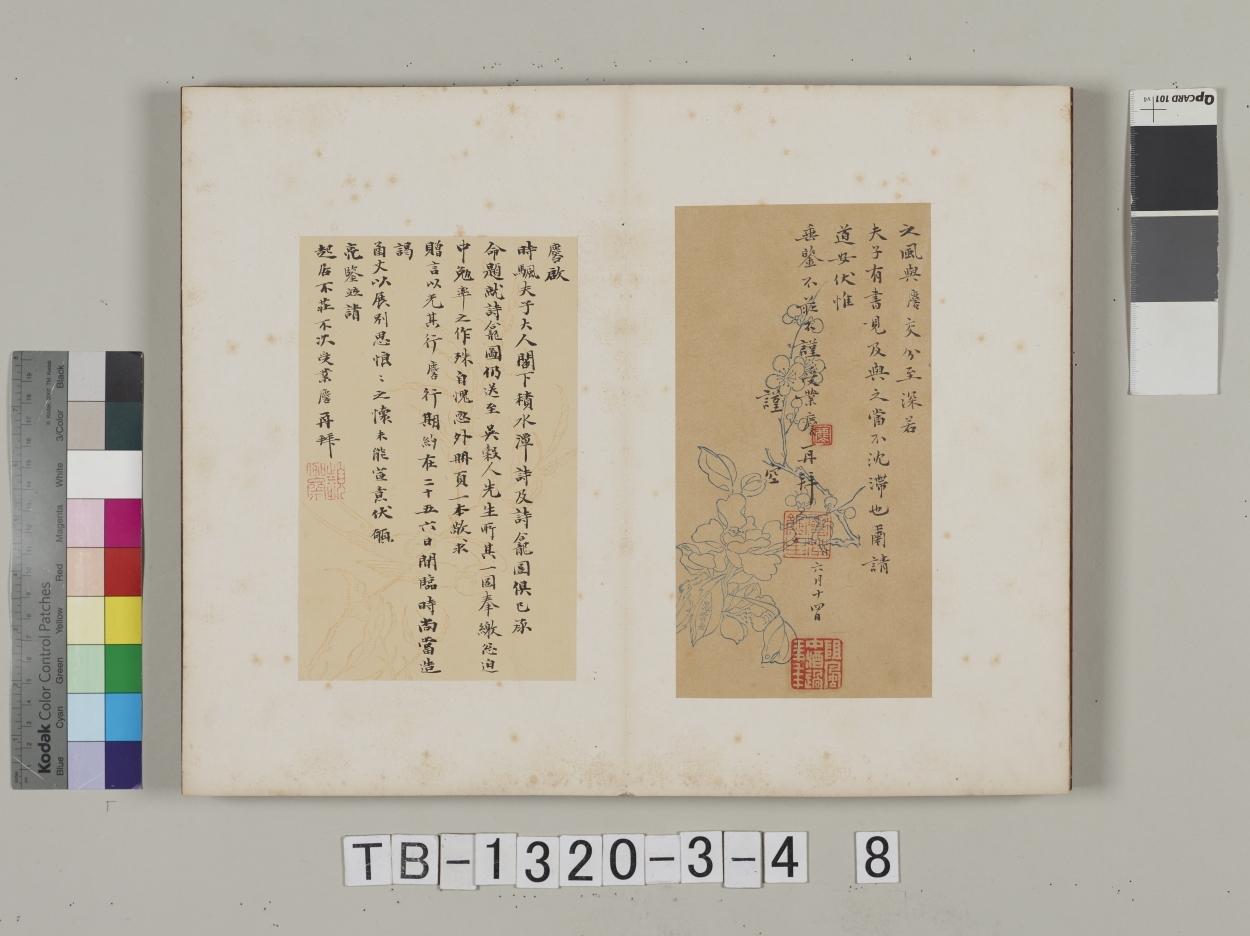 之風與麐交分至深若
夫子有書見及與之當不沈滯也肅請
道安伏惟
垂鑒不莊不謹受業麐再拜
謹空
六月十四日
麐啟
時颿夫子大人閣下積水潭詩及詩龕圖俱已承
命題就詩龕圖仍送至吳穀人先生所其一圖奉繳怱迫
中勉率之作殊自愧恧外冊頁一本敬求
贈言以光其行麐行期約在二十五六日間臨時尚當造
謁
函丈以展別思悵悵之懷未能宣意伏願
亮鑒並請
起居不莊不次受業麐再拜
Kodak Color Control Patches
Blue Cyan Green Yellow Red Magenta White 3/Color Black
QPCARD 101 v4
TB-1320-3-4 8